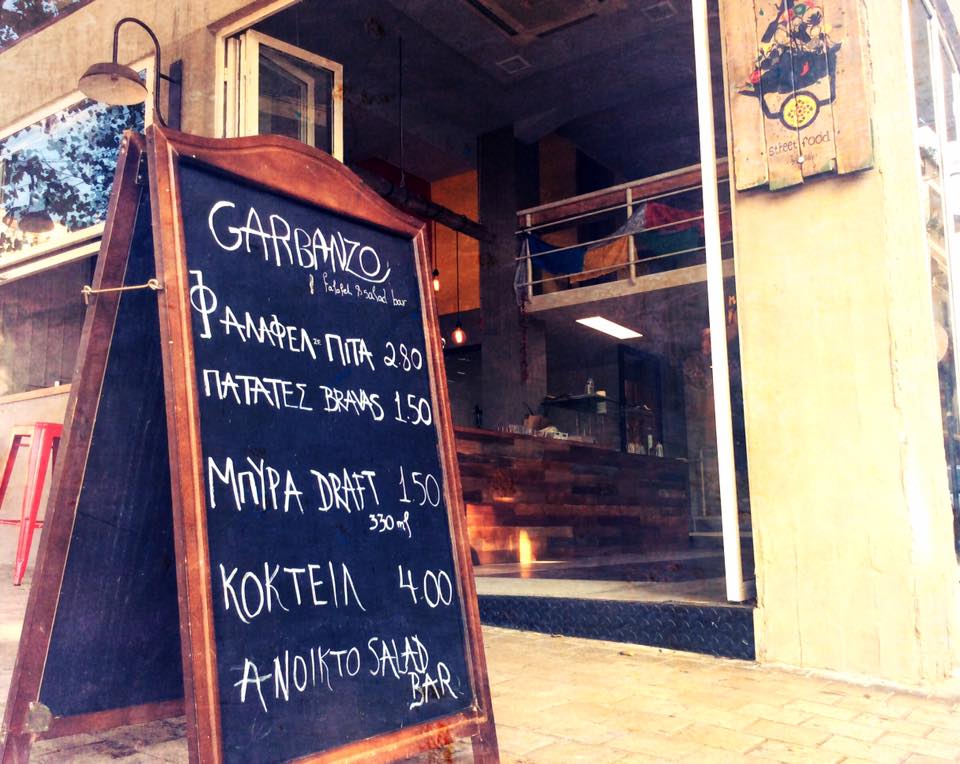 GARBANZO
falafel & salad bar
ΦΑΛΑΦΕΛ ΣΕ ΠΙΤΑ 2.80
ΠΑΤΑΤΕΣ BRAVAS 1.50
ΜΠΥΡΑ DRAFT 1.50
330 ml
ΚΟΚΤΕΙΛ 4.00
ΑΝΟΙΚΤΟ SALAD
BAR
street food